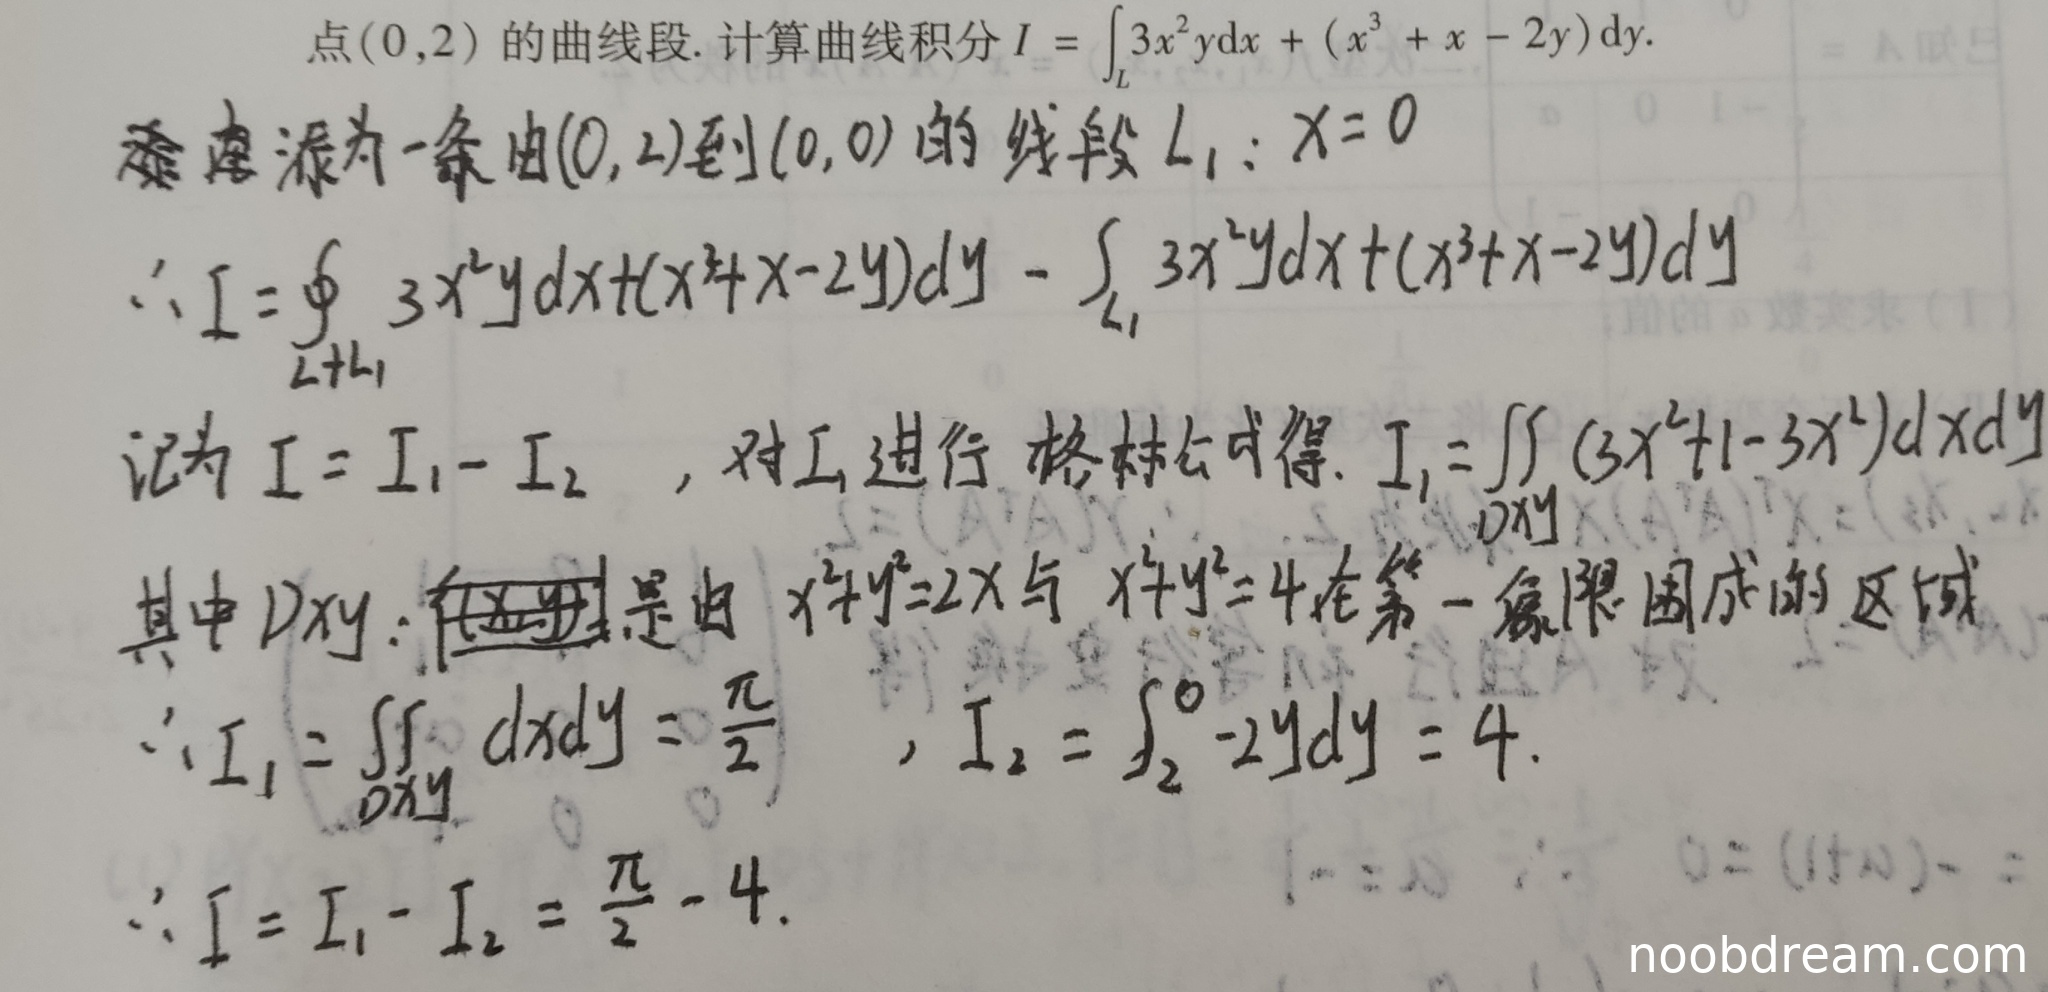 点(0,2) 的曲线段. 计算曲线积分 I = ∫_L 3x²ydx + (x³ + x - 2y)dy.
添为一条由(0,2)到(0,0)的线段 L₁: x=0
∴ I = ∮_{L+L₁} 3x²ydx+(x³+x-2y)dy - ∫_{L₁} 3x²ydx+(x³+x-2y)dy
记为 I = I₁ - I₂ , 对I₁进行 格林公式得. I₁ = ∬_{Dxy} (3x²+1-3x²)dxdy
其中Dxy: 是由 x²+y²=2x与 x²+y²=4在第一象限围成的区域
∴ I₁ = ∬_{Dxy} dxdy = π/2 , I₂ = ∫₂⁰ -2ydy = 4.
∴ I = I₁ - I₂ = π/2 - 4.
noobdream.com